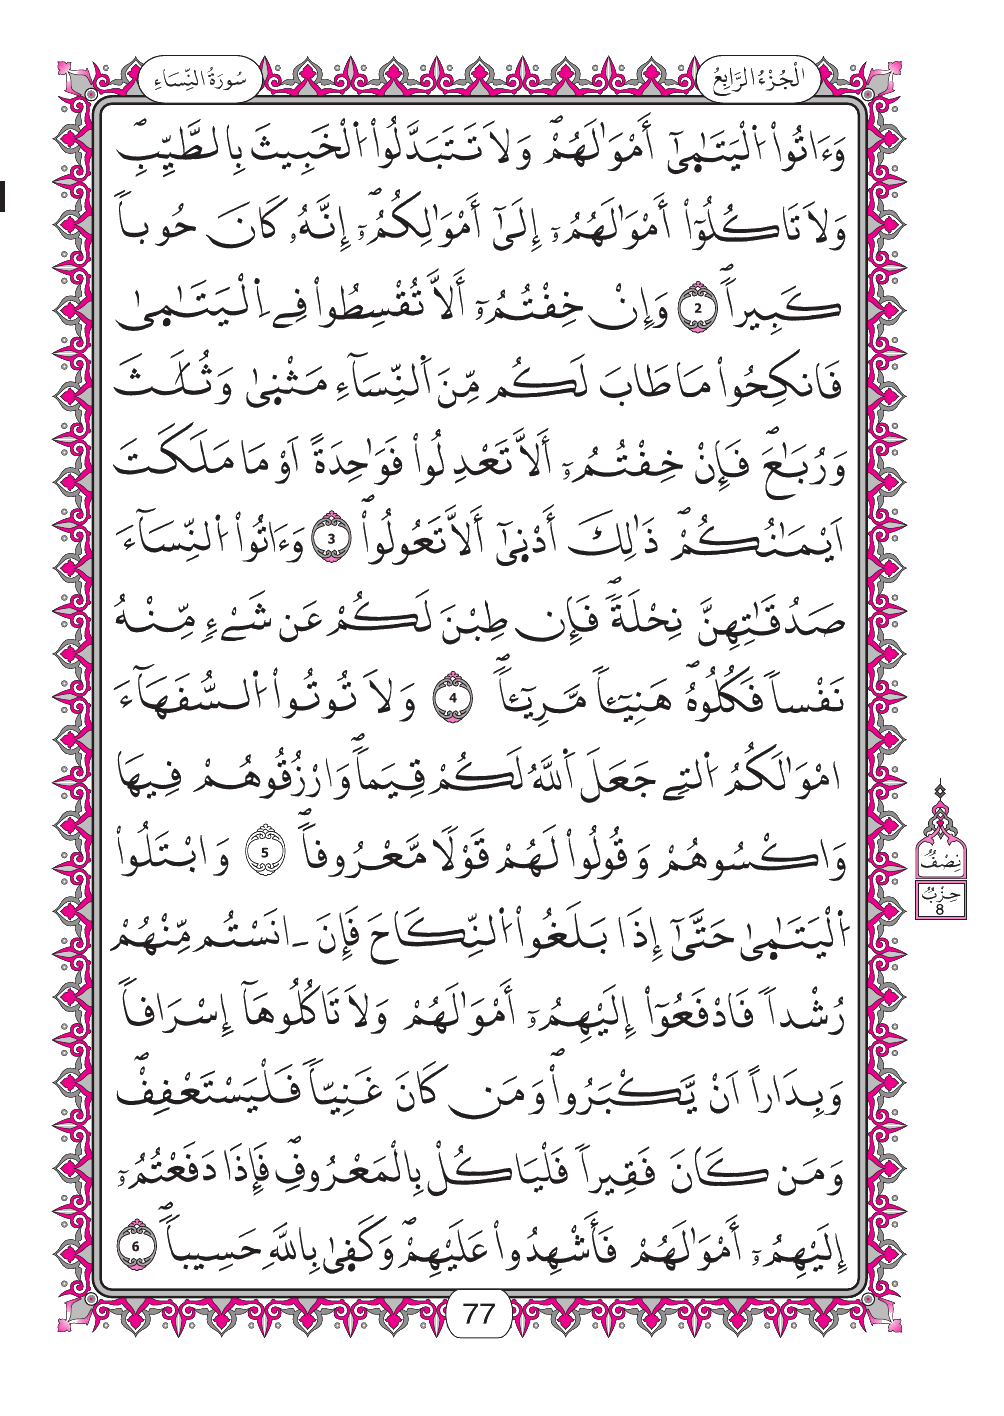 سُورَةُ النِّسَاءِ
الْجُزْءُ الرَّابِعُ
وَءَاتُواْ اُلْيَتَٰمِىٰٓ أَمْوَٰلَهُمْۖ وَلَا تَتَبَدَّلُواْ اُلْخَبِيثَ بِالطَّيِّبِۖ
وَلَا تَاكُلُوٓاْ أَمْوَٰلَهُمُۥٓ إِلَىٰٓ أَمْوَٰلِكُمُۥٓۖ إِنَّهُۥ كَانَ حُوباٗ
كَبِيراٗۖ 2 وَإِنْ خِفْتُمُۥٓ أَلَّا تُقْسِطُواْ فِے اِلْيَتَٰمِىٰ
فَانكِحُواْ مَا طَابَ لَكُم مِّنَ اَلنِّسَآءِ مَثْنِىٰ وَثُلَٰثَ
وَرُبَٰعَۖ فَإِنْ خِفْتُمُۥٓ أَلَّا تَعْدِلُواْ فَوَٰحِدَةً اَوْ مَا مَلَكَتَ
اَيْمَٰنُكُمْۖ ذَٰلِكَ أَدْنِىٰٓ أَلَّا تَعُولُواْۖ 3 وَءَاتُواْ اُلنِّسَآءَ
صَدُقَٰتِهِنَّ نِحْلَةٗۖ فَإِن طِبْنَ لَكُمْ عَن شَےْءٖ مِّنْهُ
نَفْساٗ فَكُلُوهُۖ هَنِيٓـٔاٗ مَّرِيٓـٔاٗۖ 4 وَلَا تُوتُواْ اُلسُّفَهَآءَ
امْوَٰلَكُمُ اُلتِے جَعَلَ اَللَّهُ لَكُمْ قِيَماٗۖ وَارْزُقُوهُمْ فِيهَا
وَاكْسُوهُمْ وَقُولُواْ لَهُمْ قَوْلٗا مَّعْرُوفاٗۖ 5 وَابْتَلُواْ
اُلْيَتَٰمِىٰ حَتَّىٰٓ إِذَا بَلَغُواْ اُلنِّكَاحَ فَإِنَ ـ انَسْتُم مِّنْهُمْ
رُشْداٗ فَادْفَعُوٓاْ إِلَيْهِمُۥٓ أَمْوَٰلَهُمْ وَلَا تَاكُلُوهَآ إِسْرَافاٗ
وَبِدَاراً اَنْ يَّكْبَرُواْۖ وَمَن كَانَ غَنِيّاٗ فَلْيَسْتَعْفِفْۖ
وَمَن كَانَ فَقِيراٗ فَلْيَاكُلْ بِالْمَعْرُوفِۖ فَإِذَا دَفَعْتُمُۥٓ
إِلَيْهِمُۥٓ أَمْوَٰلَهُمْ فَأَشْهِدُواْ عَلَيْهِمْۖ وَكَفِىٰ بِاللَّهِ حَسِيباٗۖ 6
نِصْفُ
حِزْبُ
8
77